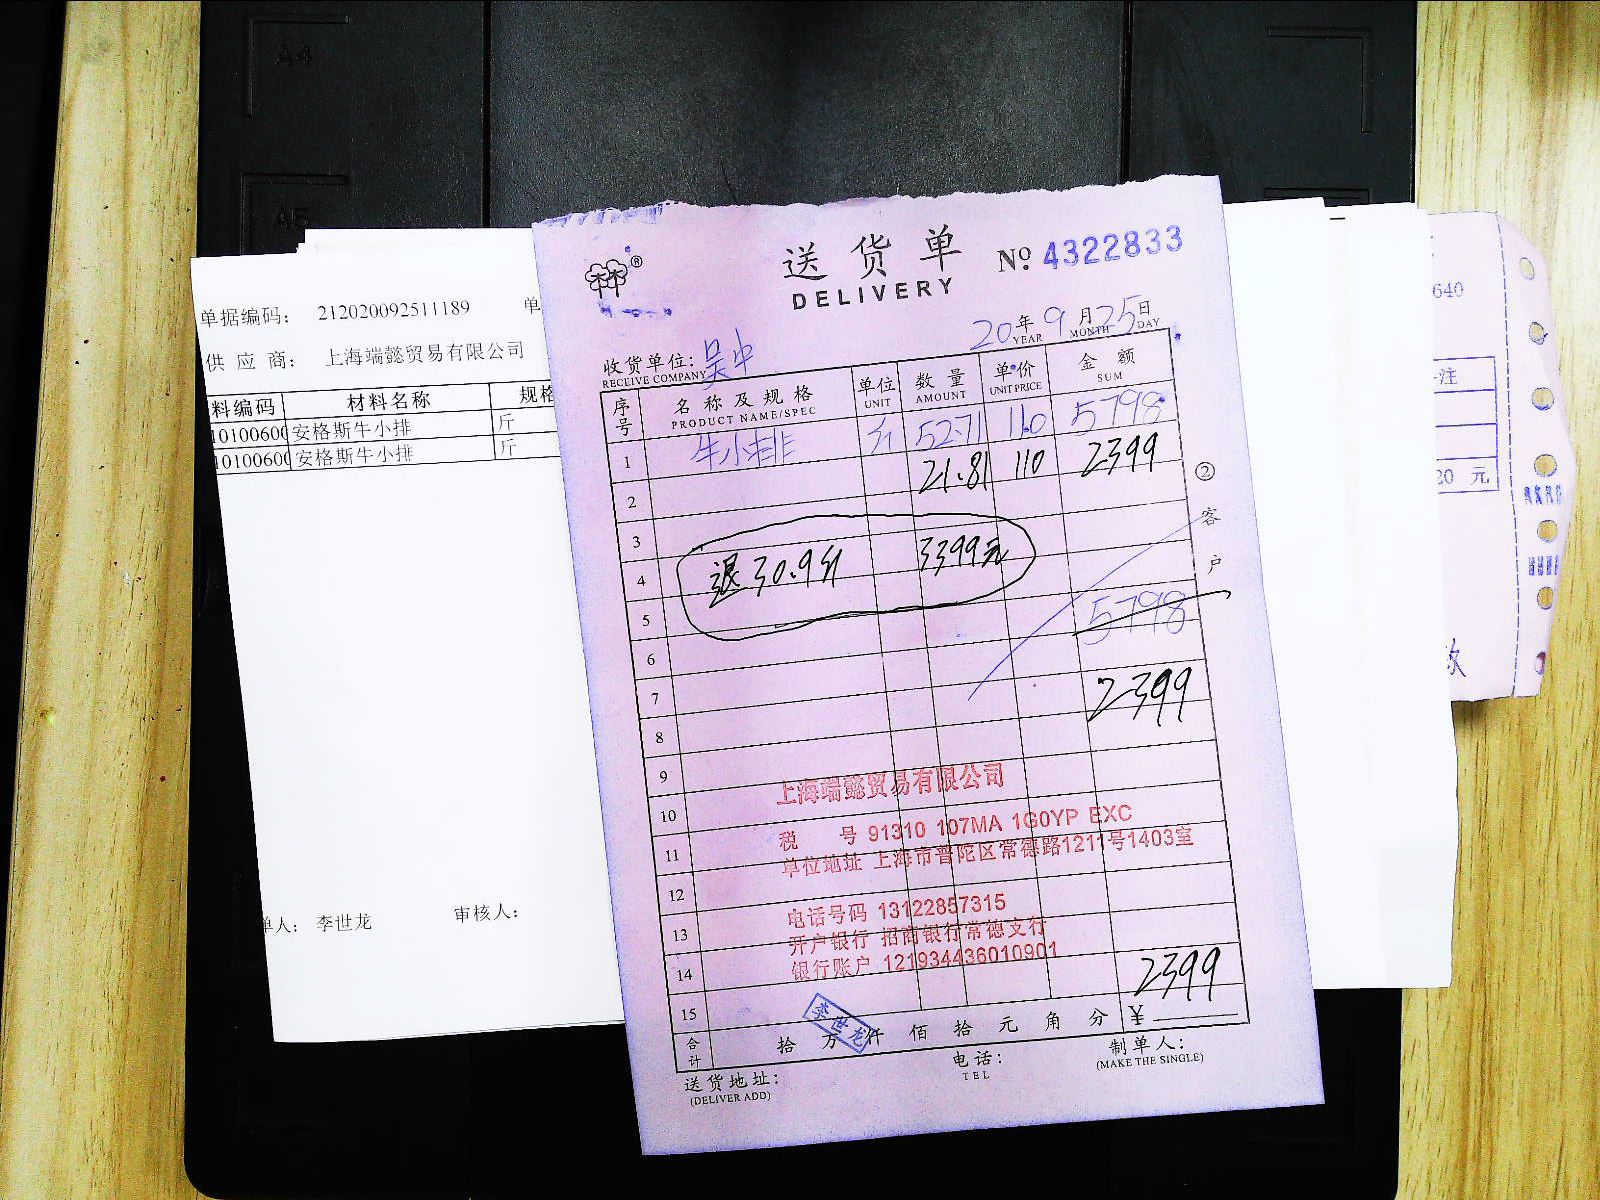 A4
A5
单据编码： 212020092511189 单
供 应 商： 上海端懿贸易有限公司
料编码 材料名称 规格
10100600 安格斯牛小排 斤
10100600 安格斯牛小排 斤
单人： 李世龙 审核人：
®
送货单
DELIVERY
№ 4322833
20年9月25日
YEAR MONTH DAY
收货单位：吴中
RECEIVE COMPANY
序号 名称及规格 单位 数量 单价 金额
PRODUCT NAME/SPEC UNIT AMOUNT UNIT PRICE SUM
1 牛小排 斤 52.71 110 5798
2 21.81 110 2399
3
4 退30.9斤 3399元
5 5798
6
7 2399
8
9
10
11
12
13
14
15 2399
上海端懿贸易有限公司
税 号 91310 107MA 1G0YP EXC
单位地址 上海市普陀区常德路1211号1403室
电话号码 13122857315
开户银行 招商银行常德支行
银行账户 121934436010901
李世龙
合计 拾 万 仟 佰 拾 元 角 分 ¥
送货地址： 电话： 制单人：
(DELIVER ADD) TEL (MAKE THE SINGLE)
②客户
640
注
20 元